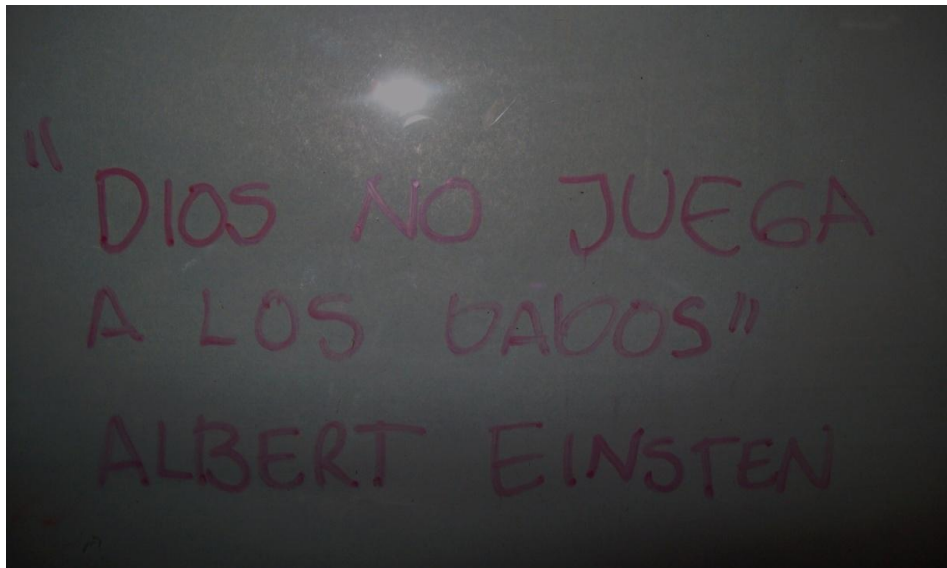 "DIOS NO JUEGA
A LOS DADOS"
ALBERT EINSTEN